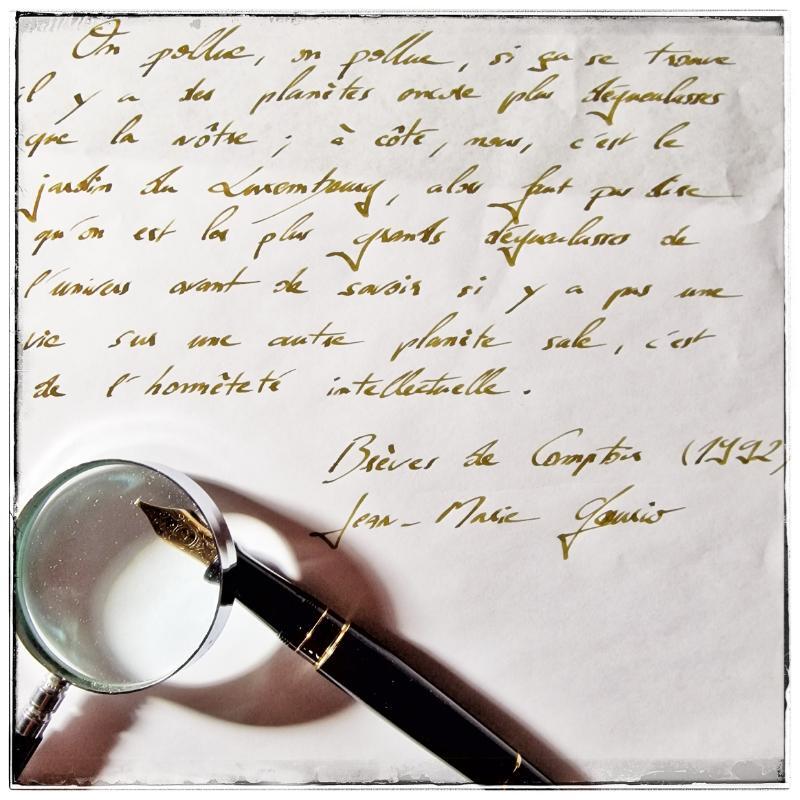 On pollue, on pollue, si ça se trouve
il y a des planètes encore plus dégueulasses
que la nôtre ; à côté, nous, c'est le
jardin du Luxembourg, alors faut pas dire
qu'on est les plus grands dégueulasses de
l'univers avant de savoir si y a pas une
vie sur une autre planète sale, c'est
de l'honnêteté intellectuelle.
Brèves de Comptoir (1992)
Jean-Marie Gourio